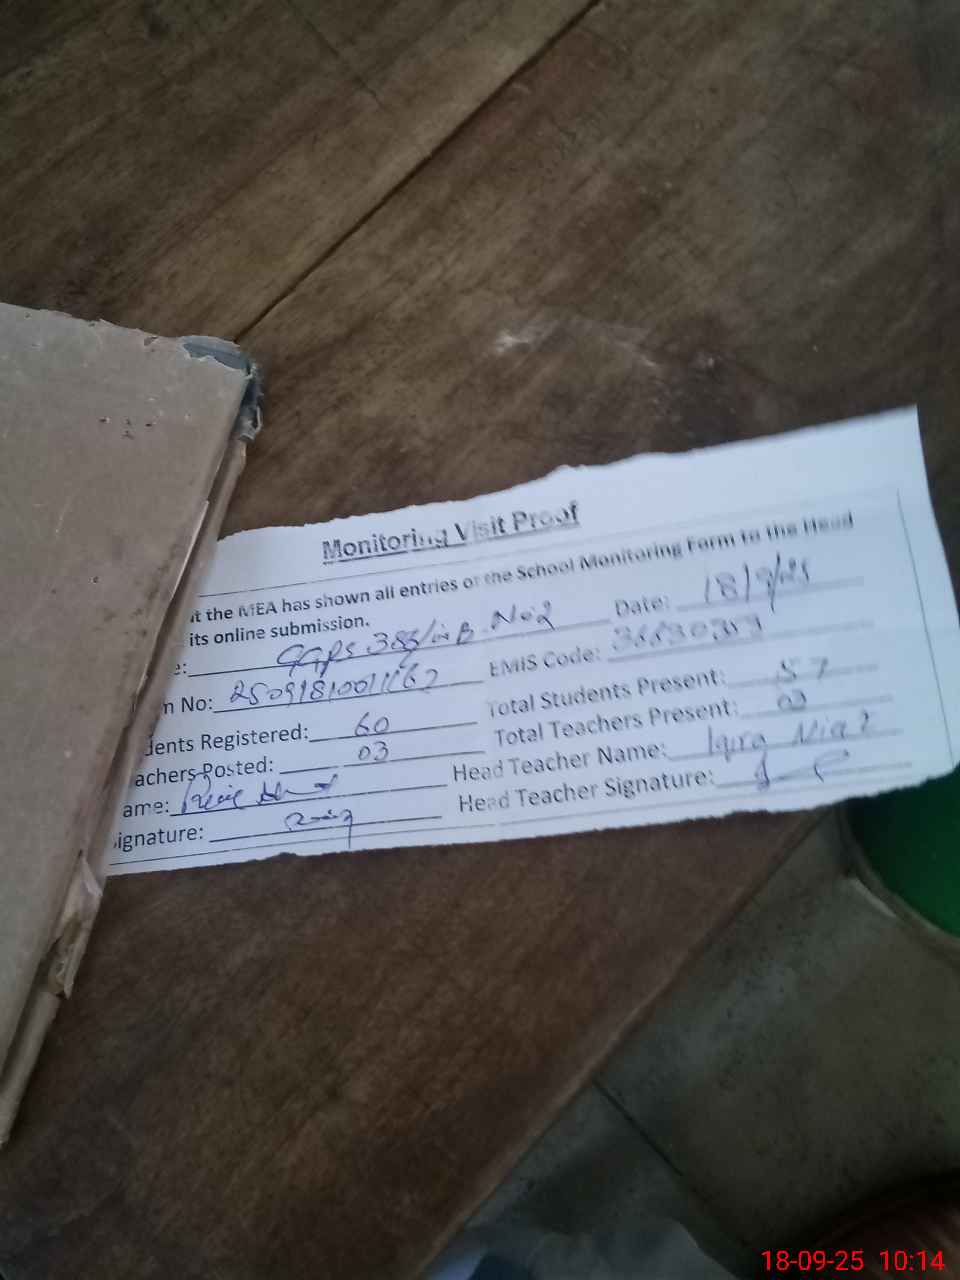 Monitoring Visit Proof
it the MEA has shown all entries of the School Monitoring Form to the Head
its online submission.
e: GGPS 386/WB No:2 Date: 18/9/25
n No: EMIS Code:
dents Registered: 60 Total Students Present: 57
achers Posted: 03 Total Teachers Present: 03
ame: Head Teacher Name: Iqra Niaz
ignature: Head Teacher Signature:
18-09-25 10:14